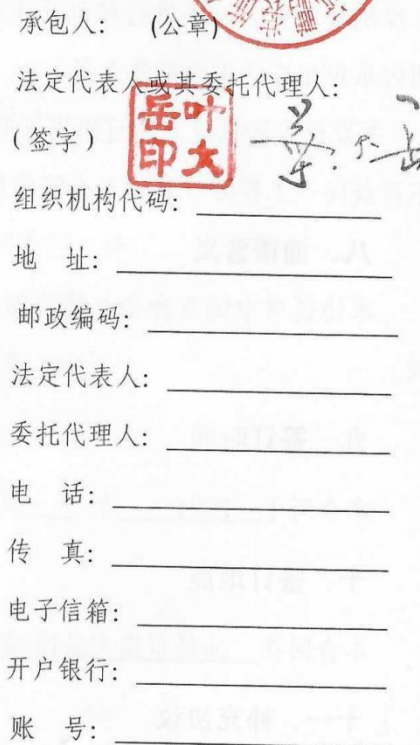 承包人: (公章)
法定代表人或其委托代理人:
(签字)
叶大岳印
组织机构代码:
地 址:
邮政编码:
法定代表人:
委托代理人:
电 话:
传 真:
电子信箱:
开户银行:
账 号: